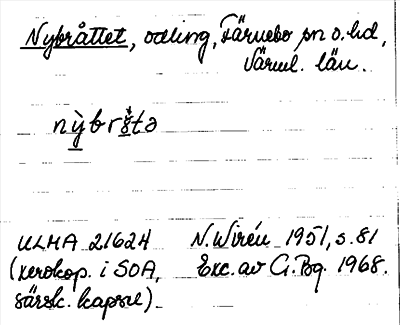 Nybråttet, odling, Färnebo sn o. hd,
Värml. län.
nỳbrs̊tə
ULMA 21624 N. Wirén 1951, s. 81
(xerokop. i SOA, Exc. av G. Bg. 1968.
särsk. kapsel).